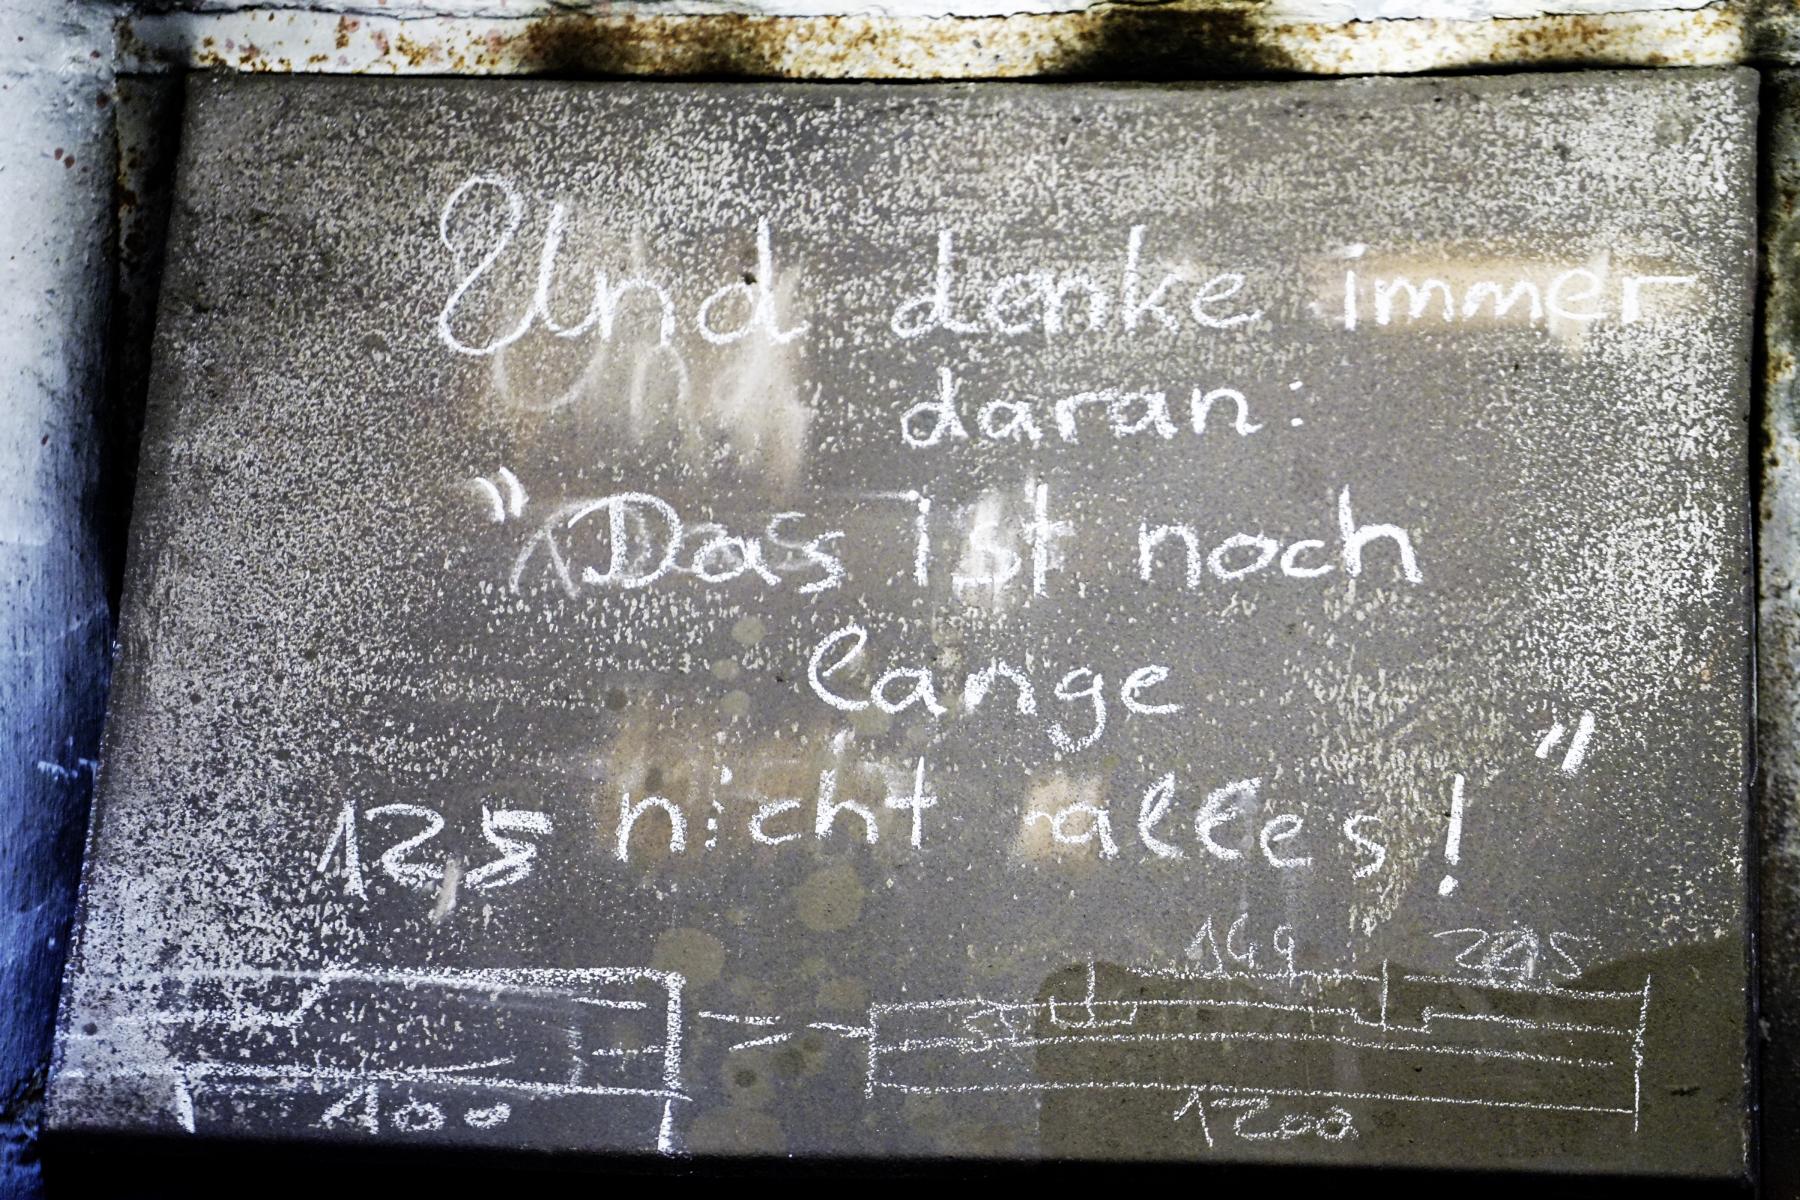 Und denke immer
daran:
"Das ist noch
lange
nicht alles!"
125
149
100
1200